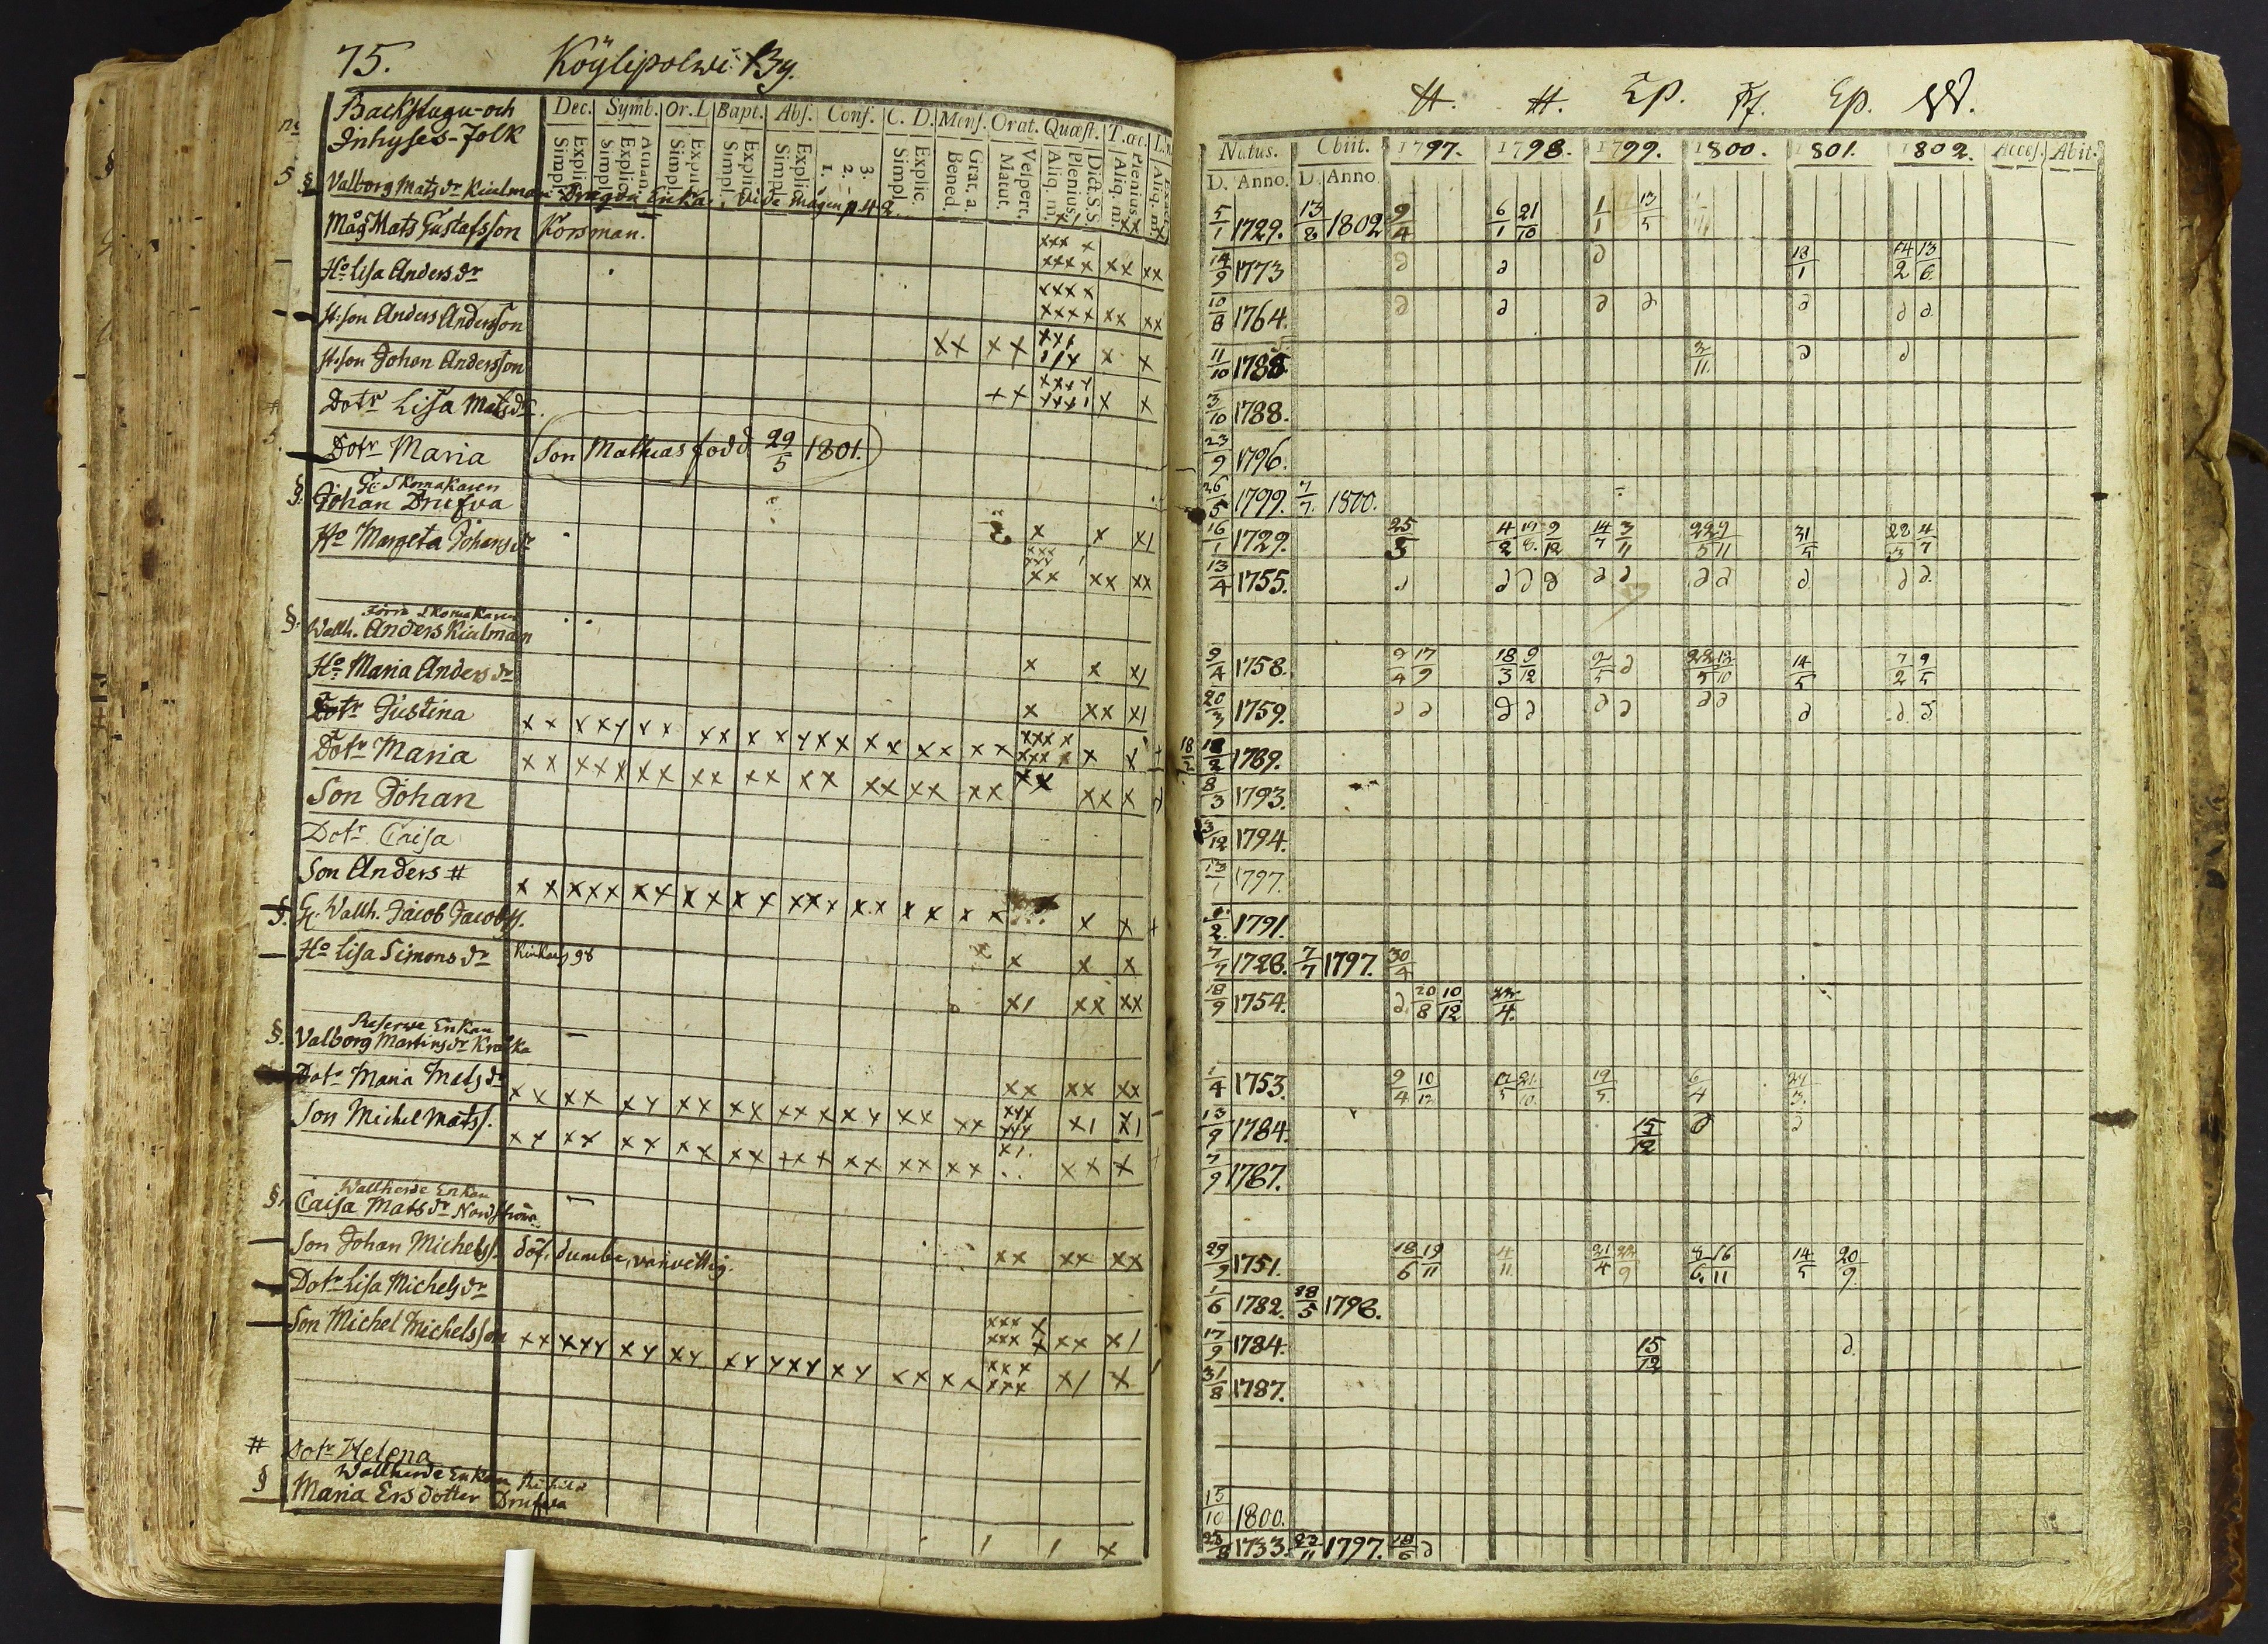 75. Köÿlipolwi By.
Backstugu- och
Inhyses-Folk
Dec. Symb. Or. L Bapt. Abs. Conf. C. D. Mens. Orat. Quæst. T. œc.
Simpl. Explic. Simpl. Explic. Athan. Simpl. Expli. Simpl. Explic. Simpl. Explic. 1. 2. 3. Simpl. Explic. Bened. Grat. a. Matut. Vespert. Aliq. m. Plenius. Dict. S. S. Aliq. m. Plenius. Aliq. m.
Valborg Mats dr Kiulman Dragon Enka, vide mågen p. 42
Måg Mats Gustafsson Korsman.
Ho Lisa Anders dr
H: son Anders Andersson
H: son Johan Andersson
Dotr Lisa Mats dr.
Dotr Maria (Son Mathias född 29/5 1801.)
Skomakaren
Johan Drufva
Ho Margeta Johans dr
Förra Skomakaren
Wallh. Anders Kiulman
Ho Maria Anders dr
Dotr Justina
Dotr Maria
Son Johan
Dotr Caisa
Son Anders #
Wallh. Jacob Jacobss.
Ho Lisa Simons dr
Reserve Enkan
Valborg Martins dr
Dotr Maria Mats dr
Son Michel Matss.
Wallherde Enkan
Caisa Mats dr
Son Johan Michelss. döf, dumbe, vanvettig.
Dotr Lisa Michels dr
Son Michel Michelsson
# Dotr Helena
Wallherde Enkan
§ Maria Ersdotter Drufva
H. H. Ep. Ep. W.
Natus. Obiit. 1797. 1798. 1799. 1800. 1801. 1802. Acces. Abit.
D. Anno. D. Anno
5/1 1729. 13/8 1802 9/4 6/1 21/10 1/1 13/5
14/9 1773 18/1 14/2 13/6
10/8 1764.
11/10 1785 2/11
3/10 1788.
23/9 1796.
26/5 1799. 7/7. 1800.
16/1 1729. 25/3 4/2 19/8 9/12 14/7 3/11 22/5 9/11 31/5 28/3 4/7
13/4 1755.
9/4 1758. 9/4 17/9 18/3 9/12 2/5 22/5 12/10 14/5 7/2 9/5
20/3 1759.
18/2 1789.
8/3 1793.
3/12 1794.
13/1 1797.
1/2 1791.
7/7 1728. 7/7 1797. 30/4
18/9 1754. 20/8 10/12 22/4.
1/4 1753. 9/4 10/12 19/5. 6/4
13/9 1784. 15/12
7/9 1787.
29/9 1751. 18/6 19/11 4/11 21/4 22/9 8/6 16/11 14/5 20/9
1/6 1782. 28/5 1798.
17/9 1784. 15/12
31/8 1787.
15/10 1800.
25/8 1733. 22/11 1797. 18/6